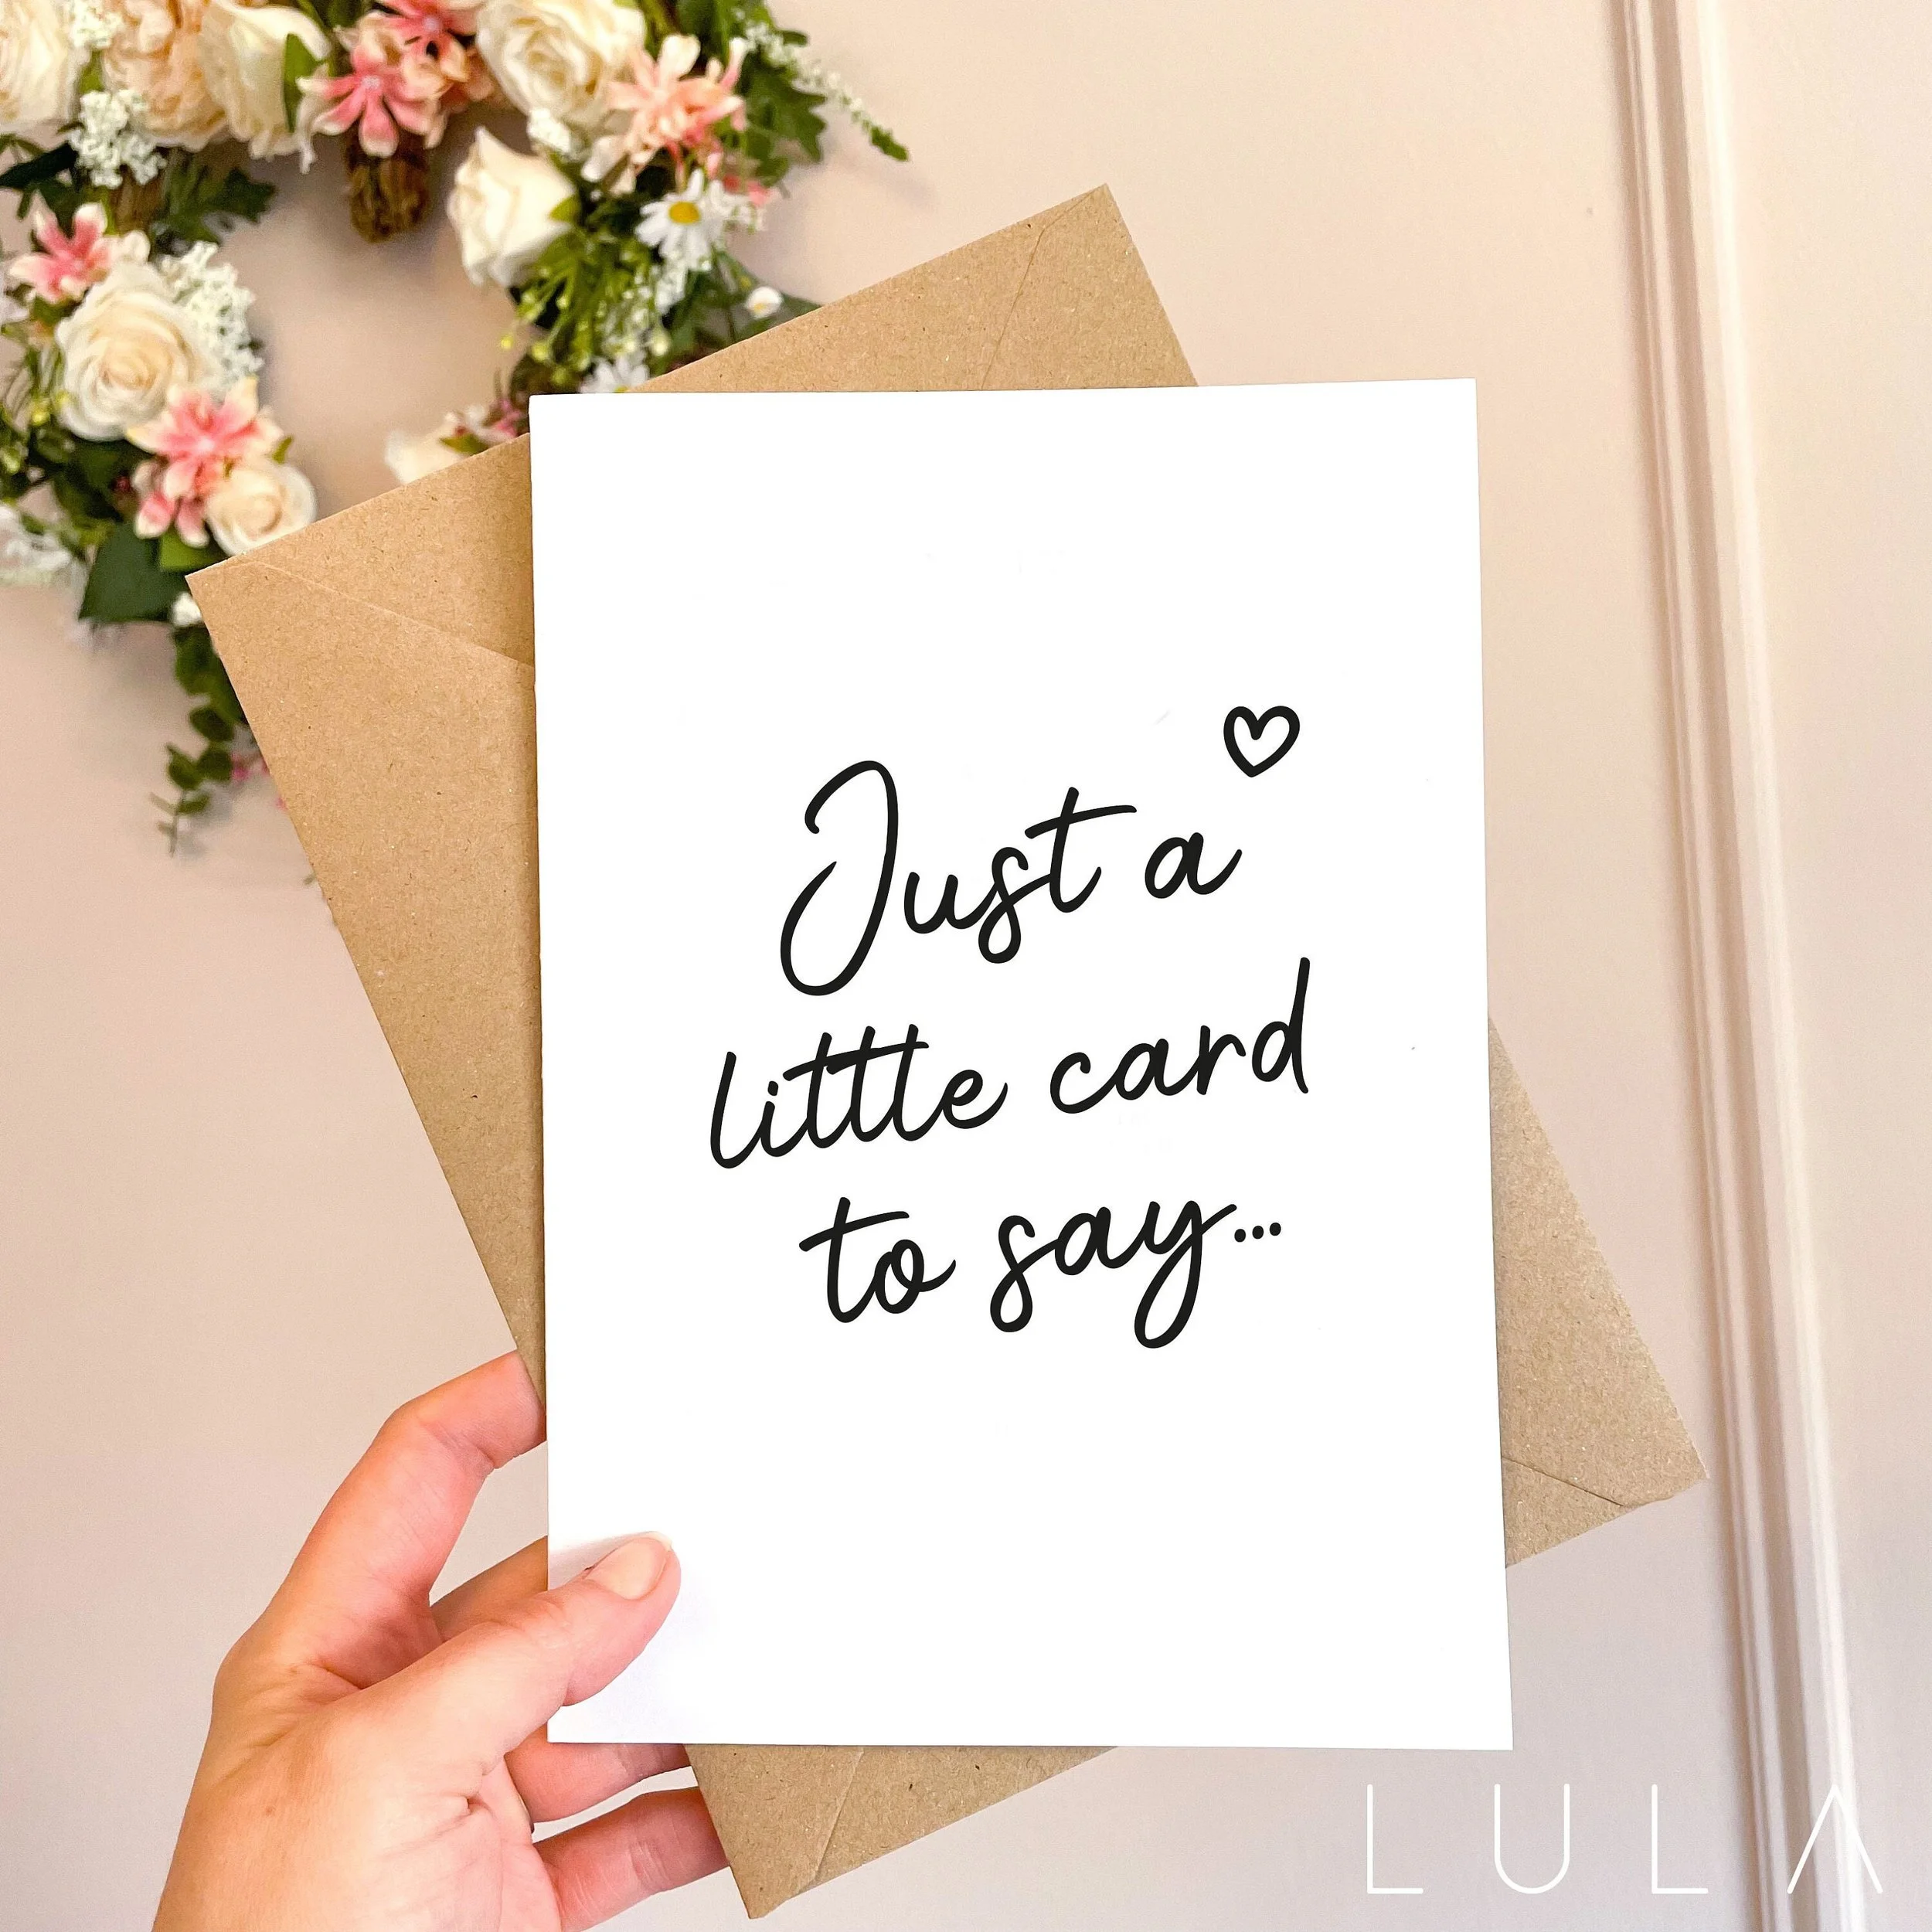 Just a
little card
to say...
LULA